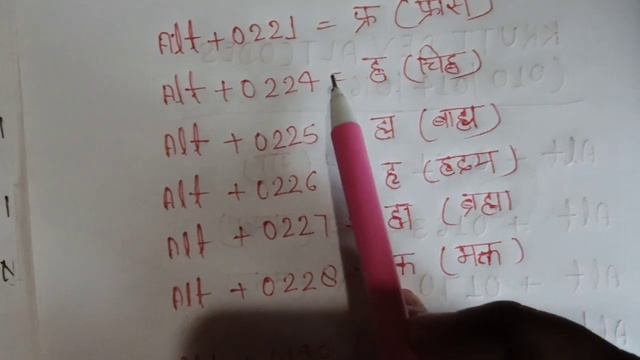 Alt + 0221 = फ्र (फ्रांस)
Alt + 0224 = ह्न (चिह्न)
Alt + 0225 ह्य (बाह्य)
Alt + 0226 हृ (हृदय)
Alt + 0227 ह्म (ब्रह्मा)
Alt + 0228 क्त (भक्त)